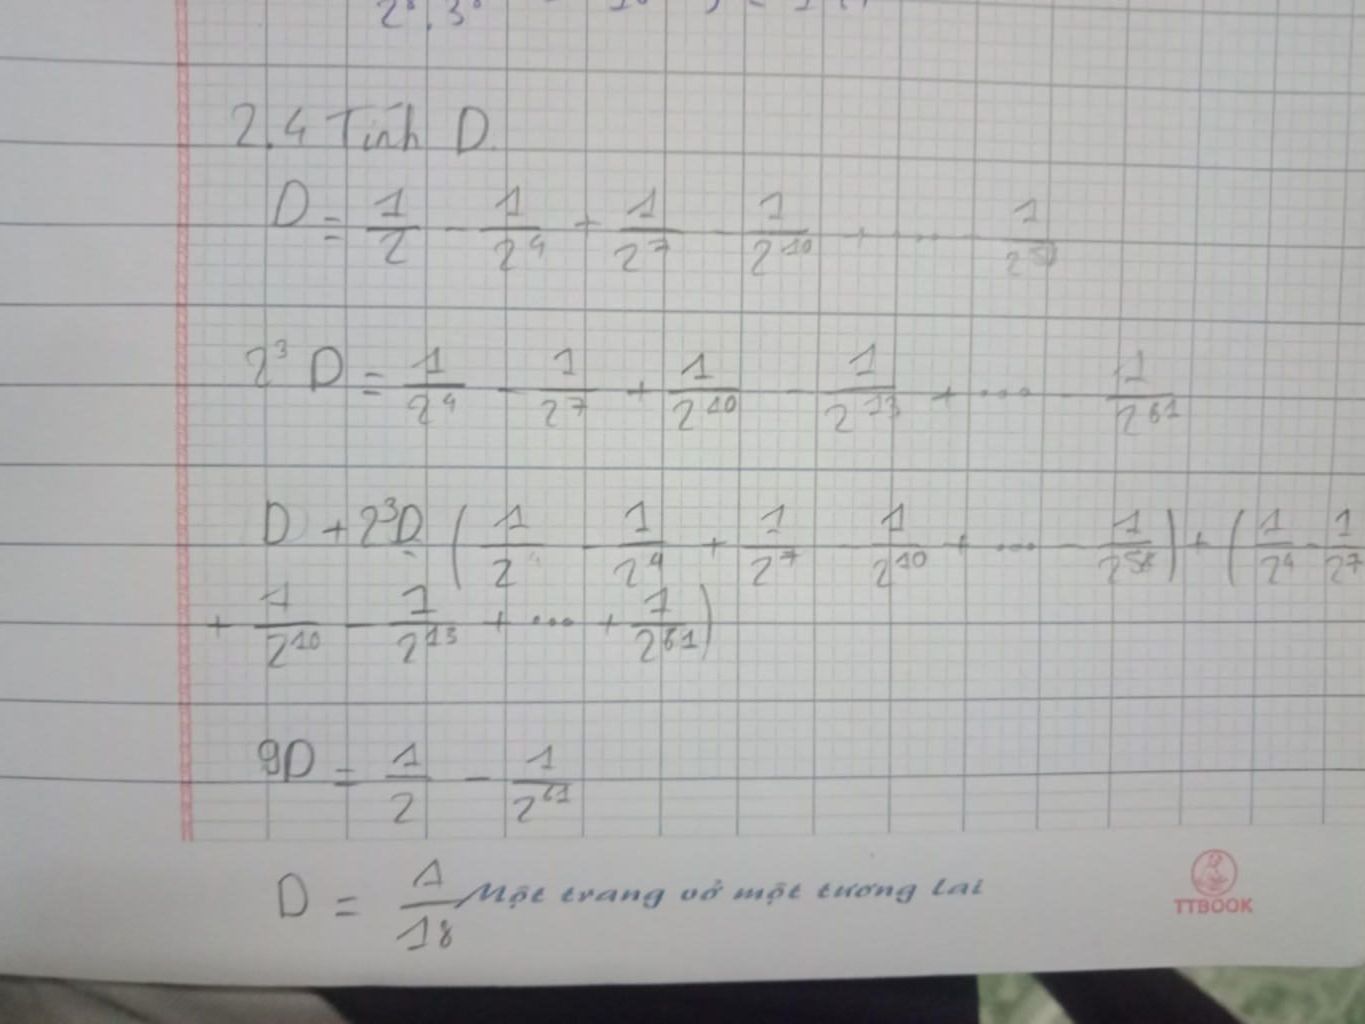 2.4 Tính D.
D = 1/2 - 1/2^4 + 1/2^7 - 1/2^10 + ... - 1/2^58
2^3 D = 1/2^4 - 1/2^7 + 1/2^10 - 1/2^13 + .... - 1/2^61
D + 2^3D = (1/2 - 1/2^4 + 1/2^7 - 1/2^10 + .... - 1/2^58) + (1/2^4 - 1/2^7
+ 1/2^10 - 1/2^13 + .... + 1/2^61)
9D = 1/2 - 1/2^61
D = 1/18
Một trang vở một tương lai
TTBOOK